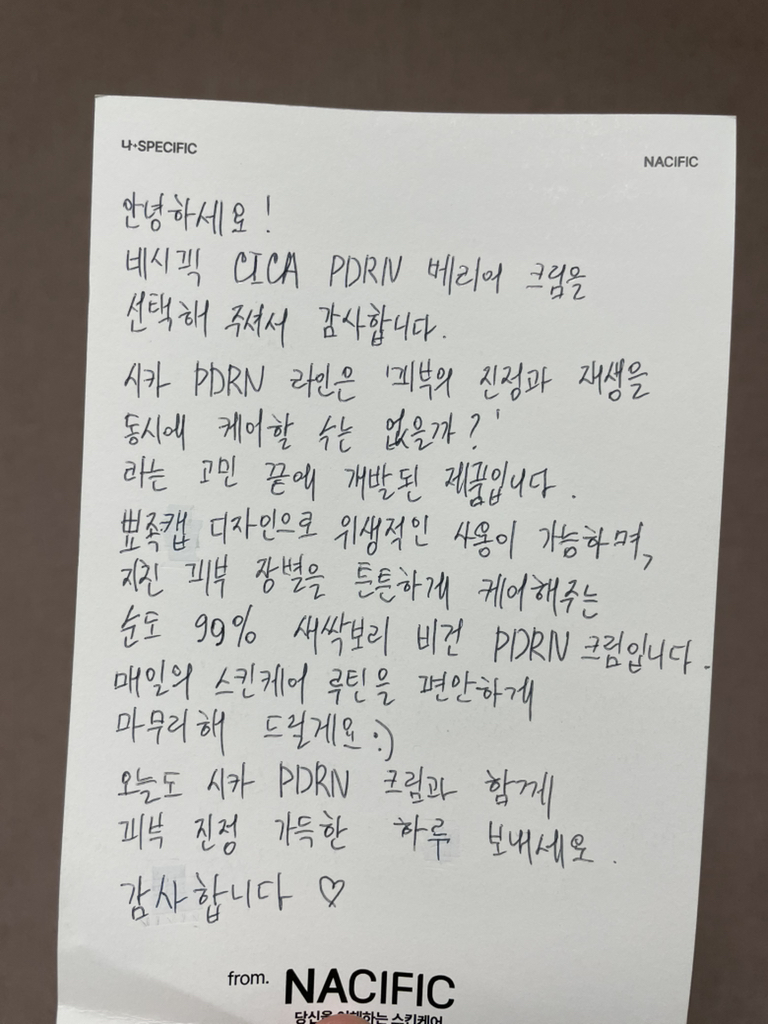 나+SPECIFIC
NACIFIC
안녕하세요!
네시픽 CICA PDRN 베리어 크림을
선택해 주셔서 감사합니다.
시카 PDRN 라인은 '피부의 진정과 재생을
동시에 케어할 수는 없을까?'
라는 고민 끝에 개발된 제품입니다.
뾰족캡 디자인으로 위생적인 사용이 가능하며,
지친 피부 장벽을 튼튼하게 케어해주는
순도 99% 새싹보리 비건 PDRN 크림입니다.
매일의 스킨케어 루틴을 편안하게
마무리해 드릴게요:)
오늘도 시카 PDRN 크림과 함께
피부 진정 가득한 하루 보내세요.
감사합니다 ♡
from. NACIFIC
당신을 스킨케어